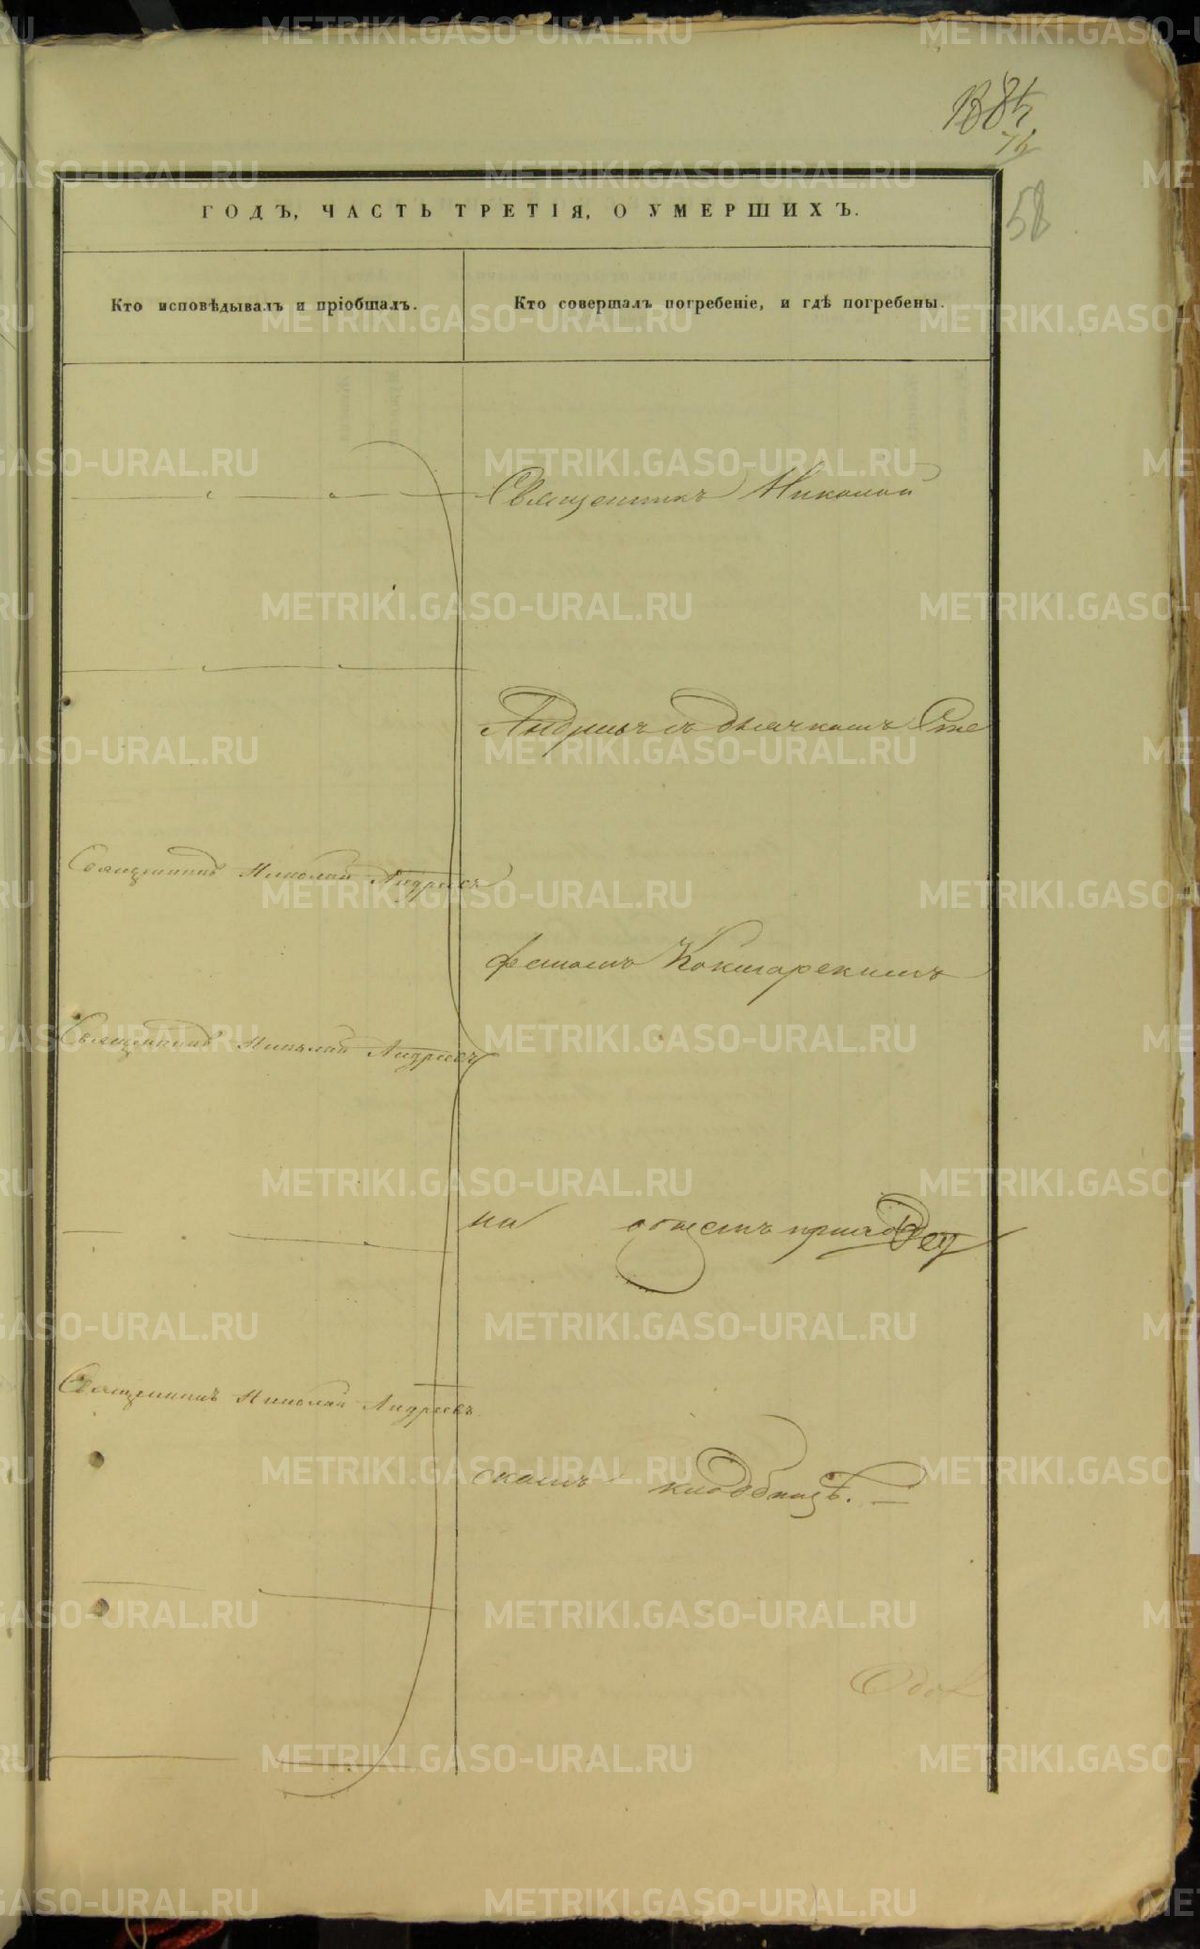 58
ГОДЪ, ЧАСТЬ ТРЕТІЯ, О УМЕРШИХЪ.
Кто исповѣдывалъ и пріобщалъ.
Кто совершалъ погребеніе, и гдѣ погребены.
Священникъ Николай
Андреевъ съ дьячкомъ Сте
Священникъ Николай Андреевъ
фаномъ Кокшарскимъ
Священникъ Николай Андреевъ
на общемъ приход
Священникъ Николай Андреевъ
скомъ кладбищѣ.
METRIKI.GASO-URAL.RU